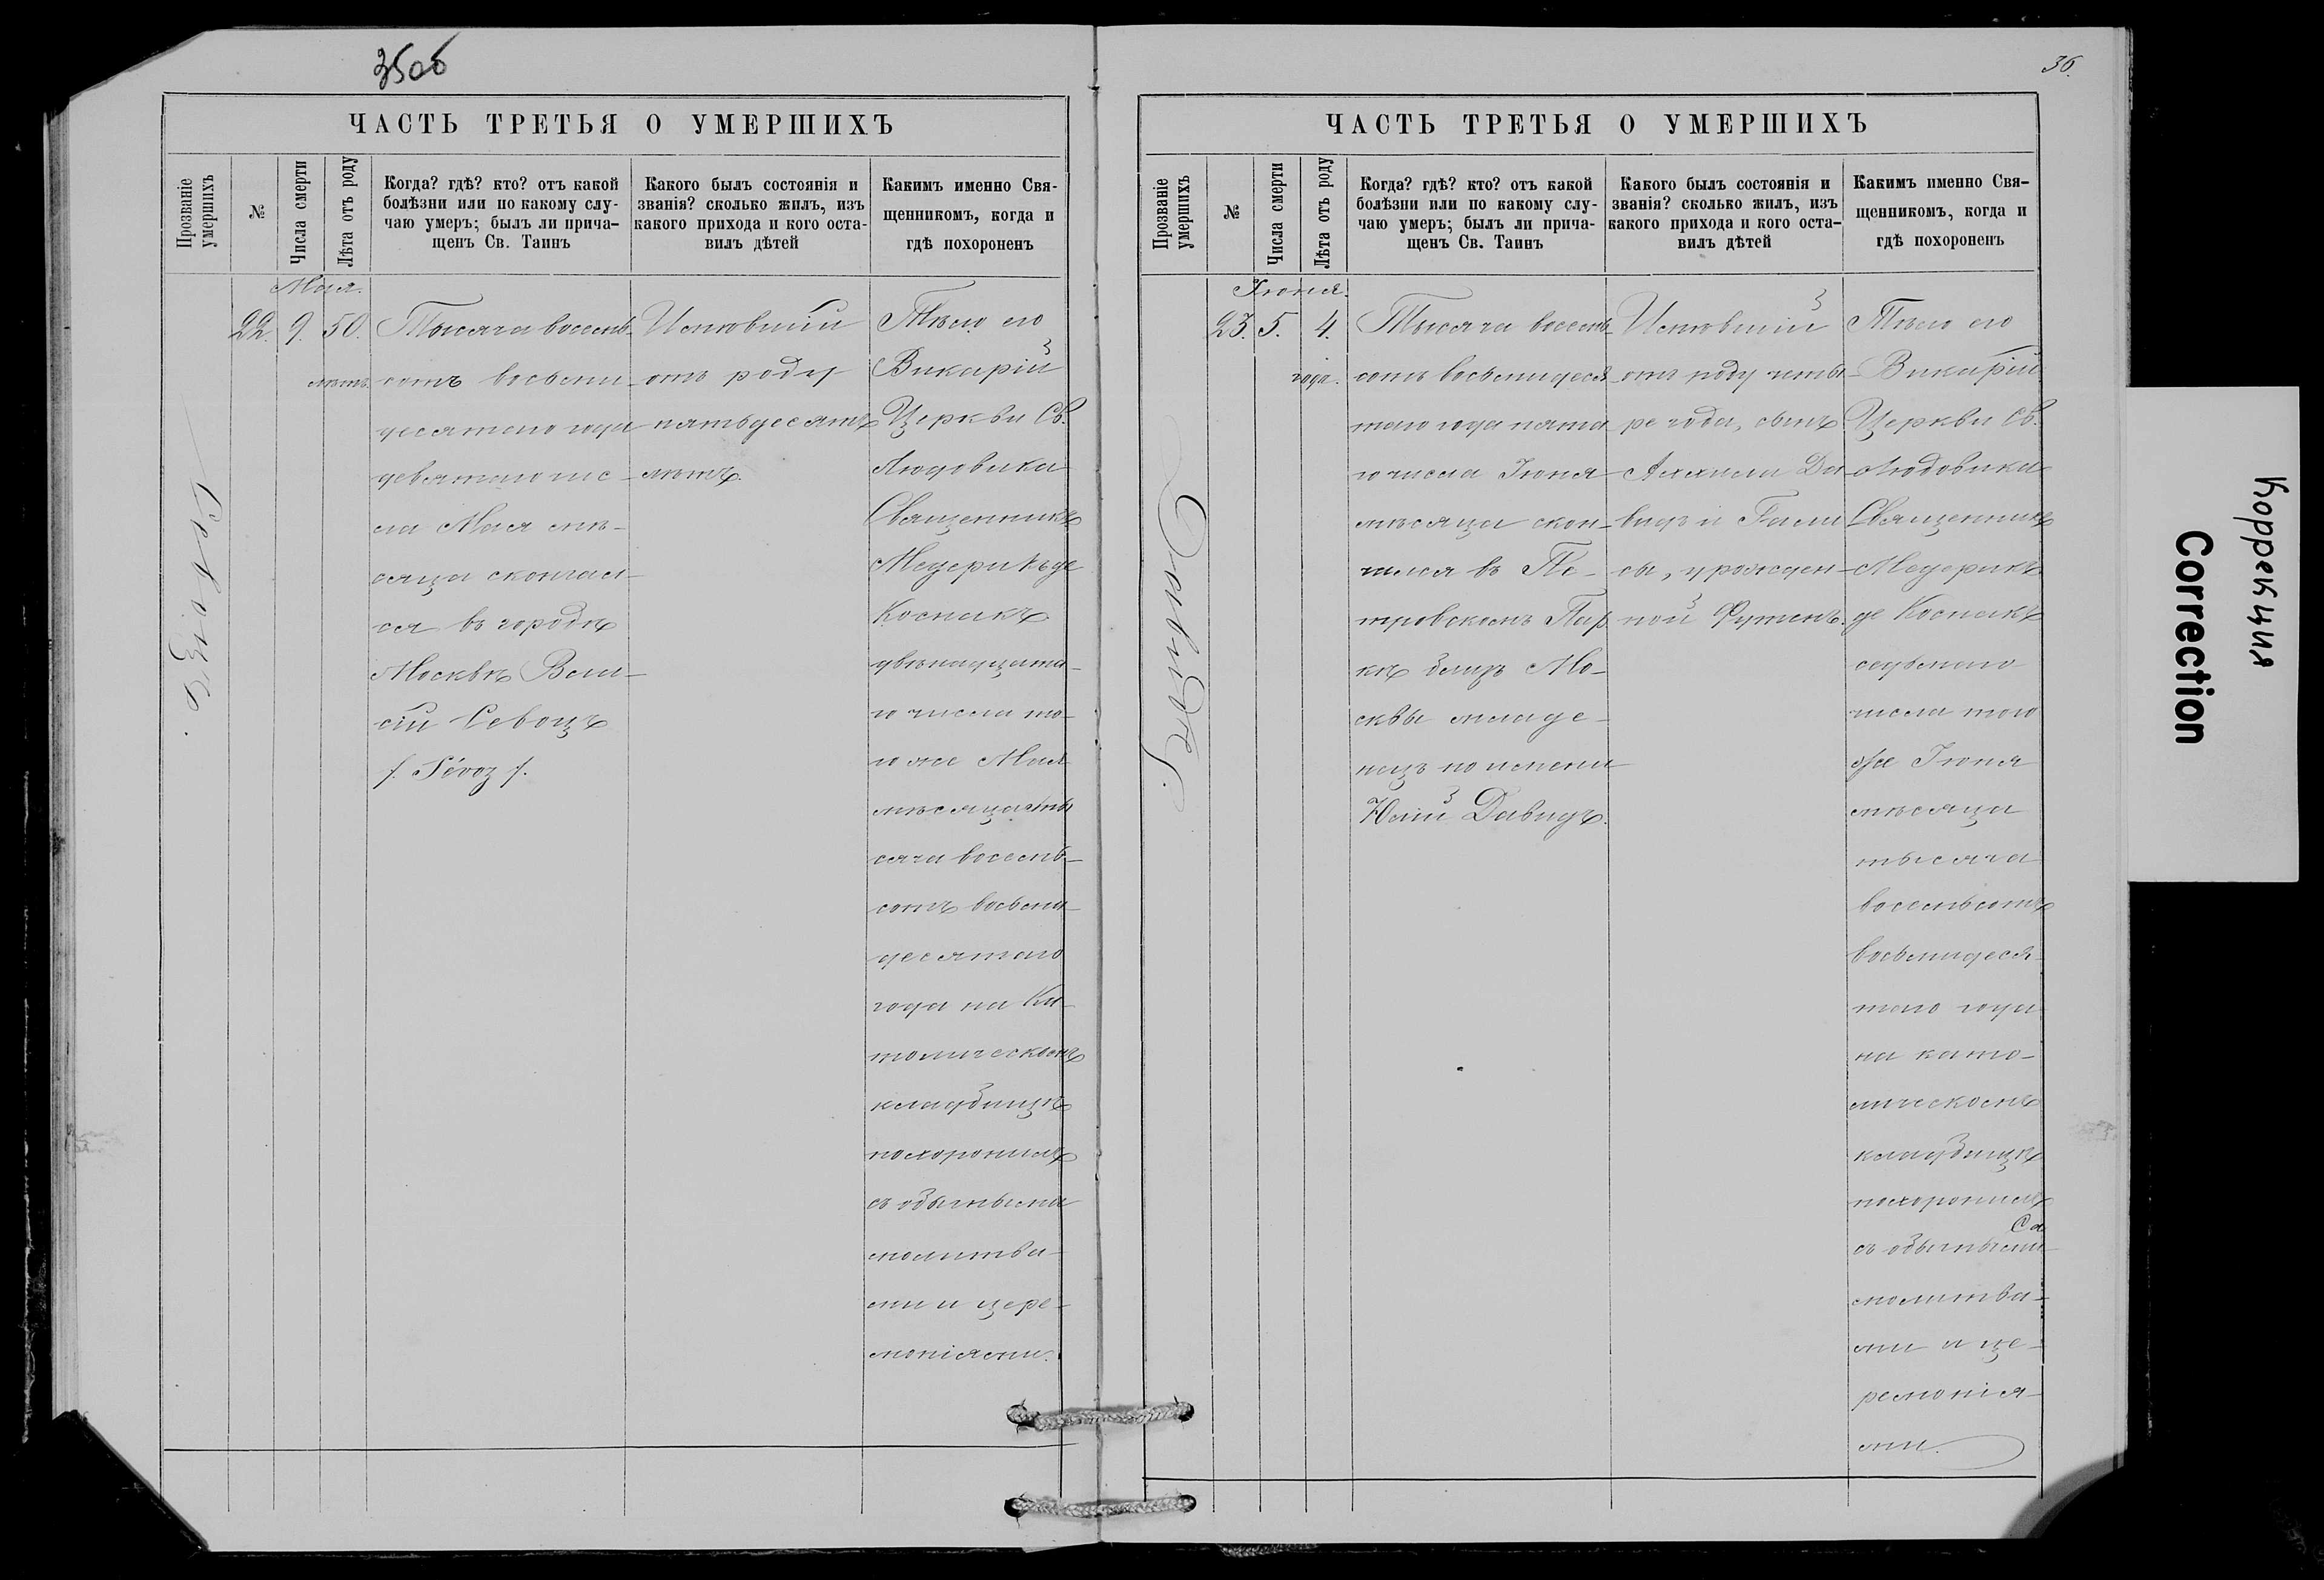 35об
ЧАСТЬ ТРЕТЬЯ О УМЕРШИХЪ
Прозваніе умершихъ
№
Числа смерти
Лѣта отъ роду
Когда? гдѣ? кто? отъ какой
болѣзни или по какому слу-
чаю умеръ; былъ ли прича-
щенъ Св. Таинъ
Какого былъ состоянія и
званія? сколько жилъ, изъ
какого прихода и кого оста-
вилъ дѣтей
Какимъ именно Свя-
щенникомъ, когда и
гдѣ похороненъ
Мая.
22. 9. 50.
лѣтъ.
Тысяча восемь-
сотъ восьми-
десятаго года
девятаго чис-
ла Мая мѣ-
сяца скончал-
ся въ городѣ
Москвѣ
Севозъ
/. Sévoz /.
отъ роду
пятьдесятъ
лѣтъ.
Тѣло его
Викарій
Церкви Св.
Людовика
Священникъ
Медерикъ де
Коснакъ
двѣнадцата-
го числа то-
го же Мая
мѣсяца ты
сяча восемь-
сотъ восьми-
десятаго
года на Ка-
толическомъ
кладбищѣ
похоронилъ
съ обычными
молитва-
ми и цере-
моніями.
36.
ЧАСТЬ ТРЕТЬЯ О УМЕРШИХЪ
Прозваніе умершихъ
№
Числа смерти
Лѣта отъ роду
Когда? гдѣ? кто? отъ какой
болѣзни или по какому слу-
чаю умеръ; былъ ли прича-
щенъ Св. Таинъ
Какого былъ состоянія и
званія? сколько жилъ, изъ
какого прихода и кого оста-
вилъ дѣтей
Какимъ именно Свя-
щенникомъ, когда и
гдѣ похороненъ
Іюня.
23. 5. 4.
года.
Тысяча восемь-
сотъ восьмидеся-
таго года пята-
го числа Іюня
мѣсяца скон-
чался въ Пе-
тровскомъ Пар-
кѣ близъ Мо-
сквы младе-
нецъ по имени
Юлій Давидъ.
отъ роду четы-
ре года, сынъ
Ахилла Да-
видъ и
урожден-
ной
Тѣло его
Викарій
Церкви Св.
Людовика
Священникъ
Медерикъ
де Коснакъ
седьмаго
числа того
же Іюня
мѣсяца
тысяча
восемьсотъ
восьмидеся-
таго года
на като-
лическомъ
кладбищѣ
похоронилъ
съ обычными
молитва-
ми и це-
ремонія-
ми.
Коррекция
Correction